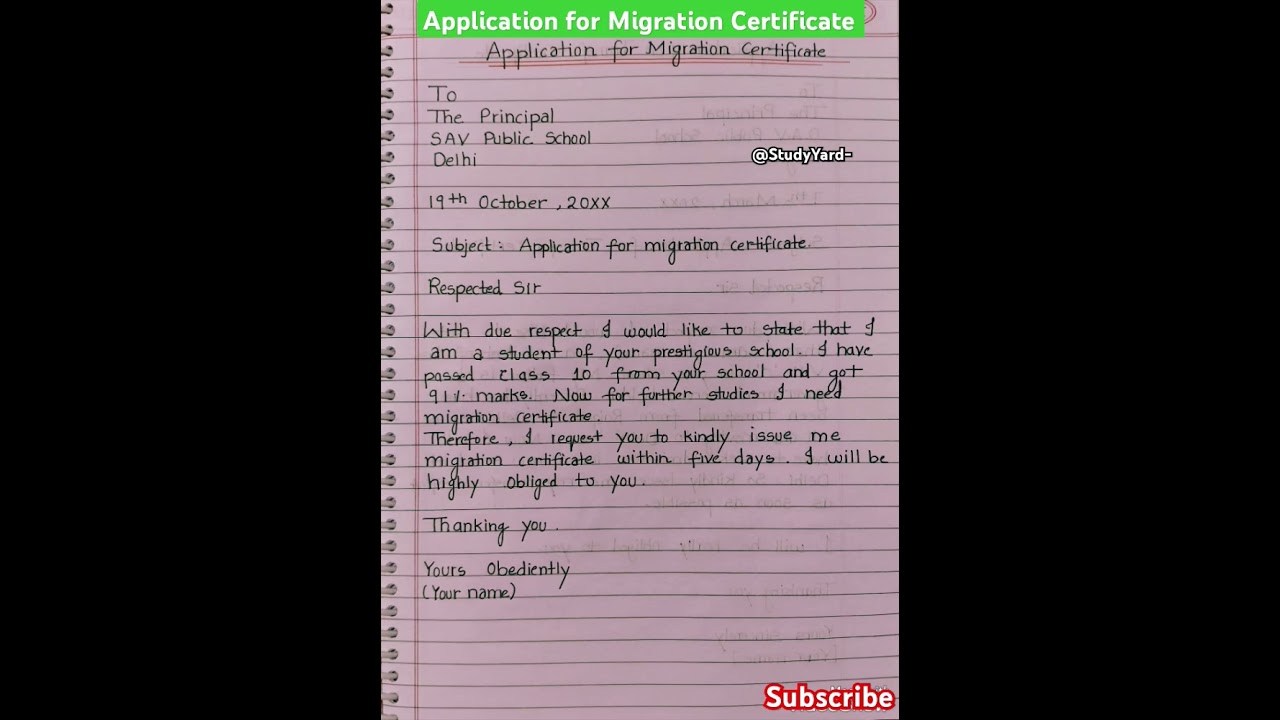 Application for Migration Certificate
Application for Migration Certificate
To
The Principal
SAV Public School
Delhi
@StudyYard-
19th October, 20XX
Subject: Application for migration certificate.
Respected Sir
With due respect I would like to state that I
am a student of your prestigious school. I have
passed class 10 from your school and got
91% marks. Now for further studies I need
migration certificate.
Therefore, I request you to kindly issue me
migration certificate within five days. I will be
highly obliged to you.
Thanking you.
Yours Obediently
(Your name)
Subscribe